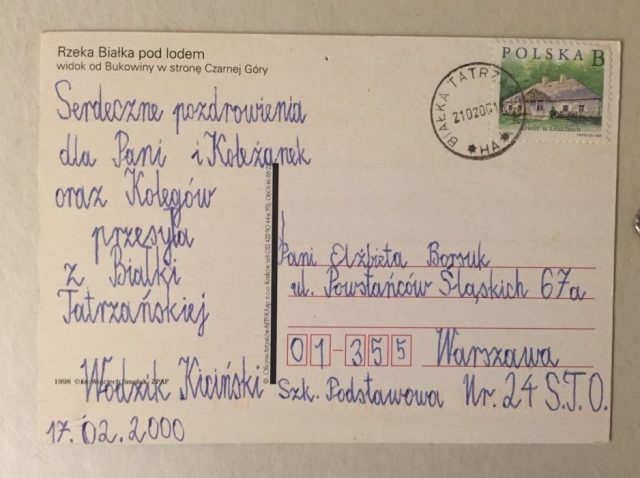 Rzeka Białka pod lodem
widok od Bukowiny w stronę Czarnej Góry
POLSKA B
Dwór w Głuchach
BIAŁKA TATRZ
210200
*HA*
Serdeczne pozdrowienia
dla Pani i Koleżanek
oraz Kolegów
przesyła
z Białki
Tatrzańskiej
Wodzik Kiciński
17.02.2000
1998 © fot. Wojciech Smolak, ZPAF
Pani Elżbieta Borsuk
ul. Powstańców Śląskich 67a
01-355 Warszawa
Szk. Podstawowa Nr. 24 S.T.O.